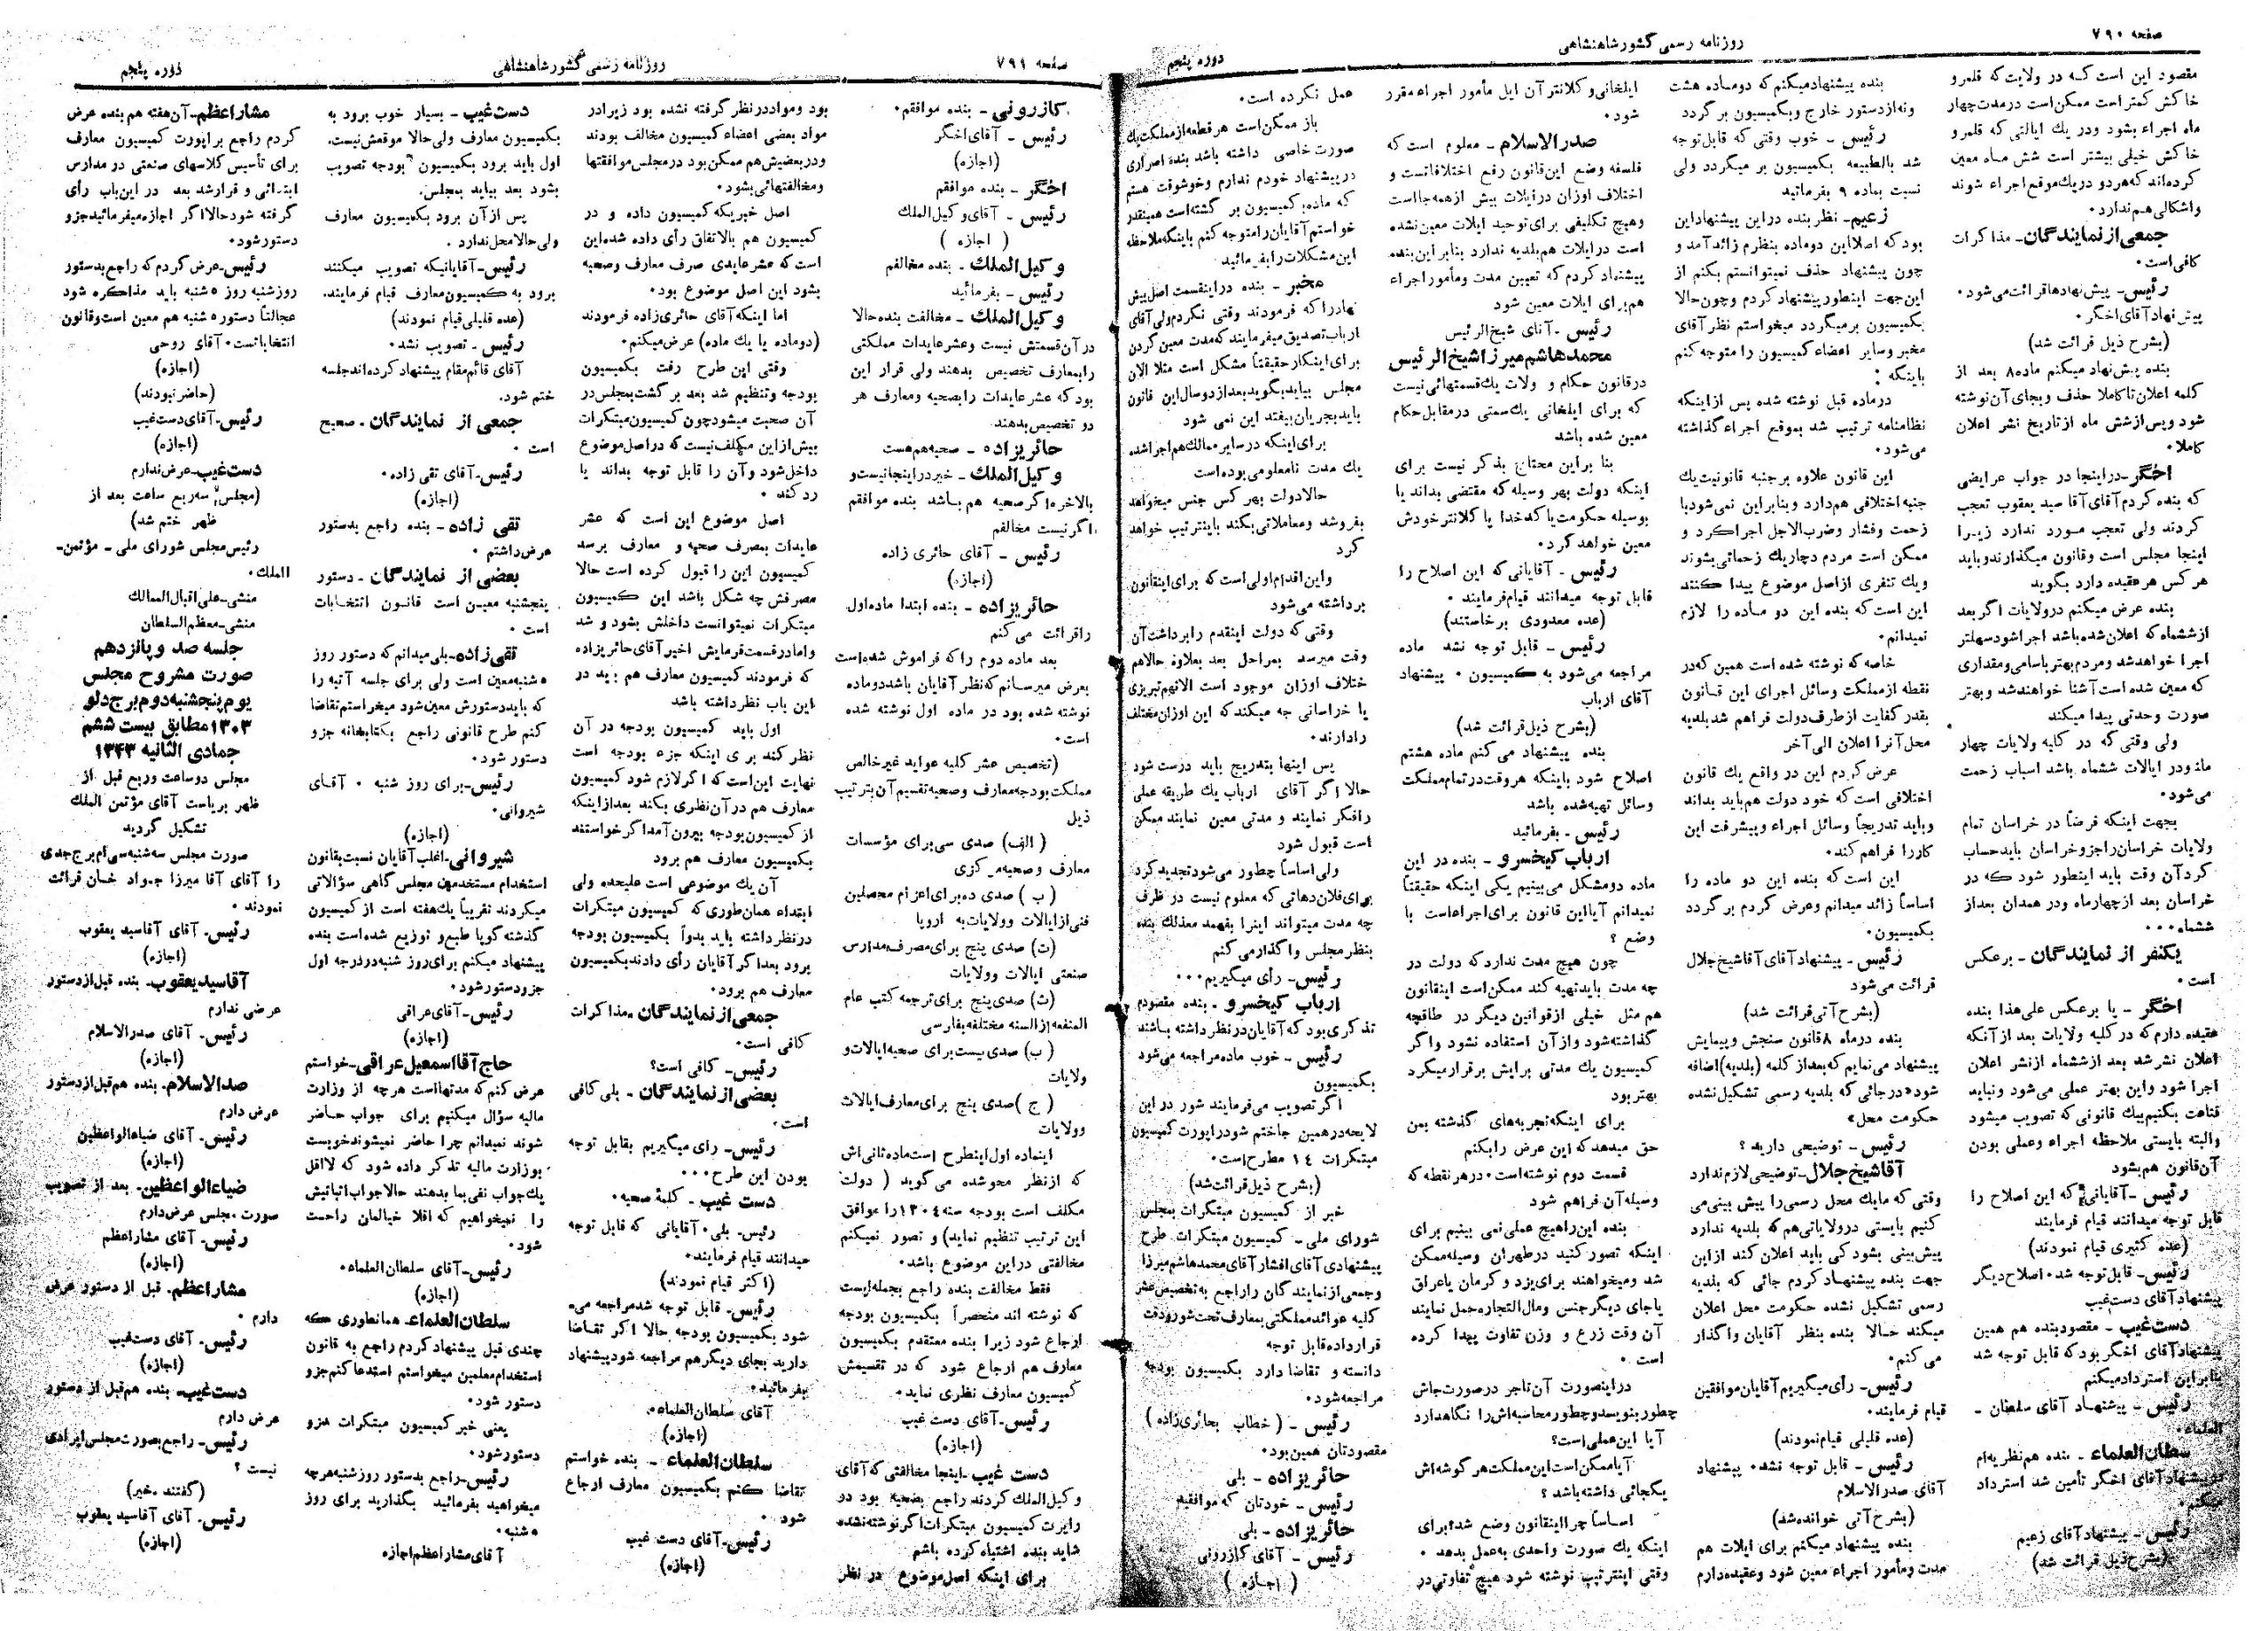 صفحه ۷۹۰
روزنامه رسمی کشور شاهنشاهی
دوره پنجم
مقصود این است که در ولایت که قلمرو
خاکش کمتر است ممکن است در مدت چهار
ماه اجراء بشود ودر یك ایالتی که قلمرو
خاکش خیلی بیشتر است شش ماه معین
کرده‌اند که هردو دریك موقع اجراء شوند
واشکالی هم ندارد.
جمعی از نمایندگان- مذاکرات
کافی است.
رئیس- پیش‌نهادها قرائت می‌شود.
پیش‌نهاد آقای اخگر.
(بشرح ذیل قرائت شد)
بنده پیش‌نهاد میکنم ماده۸ بعد از
کلمه اعلان تا کاملا حذف و بجای آن نوشته
شود وپس ازشش ماه از تاریخ نشر اعلان
کاملا.
اخگر- دراینجا در جواب عرایضی
که بنده کردم آقای آقا سید یعقوب تعجب
کردند ولی تعجب مورد ندارد زیرا
اینجا مجلس است وقانون میگذارند و باید
هر کس هر عقیده دارد بگوید
بنده عرض میکنم درولایات اگر بعد
ازششماه که اعلان شده باشد اجرا شود سهلتر
اجرا خواهد شد ومردم بهتر باسامی ومقداری
که معین شده است آشنا خواهند شد و بهتر
صورت وحدتی پیدا میکند
ولی وقتی که در کلیه ولایات چهار
ماه ودر ایالات ششماه باشد اسباب زحمت
می‌شود.
بجهت اینکه فرضاً در خراسان تمام
ولایات خراسان را جزو خراسان باید حساب
کرد آن وقت باید اینطور شود که در
خراسان بعد ازچهارماه ودر همدان بعداز
ششماه...
یکنفر از نمایندگان - برعکس
است.
اخگر - یا برعکس علی هذا بنده
عقیده دارم که در کلیه ولایات بعد از آنکه
اعلان نشر شد بعد ازششماه ازنشر اعلان
اجرا شود واین بهتر عملی می‌شود ونباید
قناعت بکنیم بیك قانونی که تصویب میشود
والبته بایستی ملاحظه اجراء وعملی بودن
آن قانون هم بشود
رئیس - آقایانی که این اصلاح را
قابل توجه میدانند قیام فرمایند
(عده کثیری قیام نمودند)
رئیس- قابل توجه شد. اصلاح دیگر
پیشنهاد آقای دست غیب
دست غیب - مقصود بنده هم همین
پیشنهاد آقای اخگر بود که قابل توجه شد
بنابراین استرداد میکنم
رئیس - پیشنهاد آقای سلطان -
العلماء.
سلطان العلماء - بنده هم نظریه‌ام
در پیشنهاد آقای اخگر تأمین شد استرداد
میکنم.
رئیس - پیشنهاد آقای زعیم
(بشرح ذیل قرائت شد)
بنده پیشنهاد میکنم که دوماده هشت
ونه از دستور خارج وبکمیسیون بر گردد
رئیس - خوب وقتی که قابل توجه
شد بالطبیعه بکمیسیون بر میگردد ولی
نسبت بماده ۹ بفرمائید
زعیم- نظر بنده دراین پیشنهاد این
بود که اصلا این دوماده بنظرم زائد آمد و
چون پیشنهاد حذف نمیتوانستم بکنم از
این جهت اینطور پیشنهاد کردم وچون حالا
بکمیسیون برمیگردد میخواستم نظر آقای
مخبر وسایر اعضاء کمیسیون را متوجه کنم
باینکه :
درماده قبل نوشته شده پس از اینکه
نظامنامه ترتیب شد بموقع اجراء گذاشته
می‌شود.
این قانون علاوه بر جنبه قانونیت یك
جنبه اختلافی هم دارد وبنابراین نمی‌شود با
زحمت وفشار وضرب الاجل اجرا کرد و
ممکن است مردم دچار یك زحماتی بشوند
ویك تنفری ازاصل موضوع پیدا کنند
این است که بنده این دو ماده را لازم
نمیدانم.
خاصه که نوشته شده است همین که در
نقطه از مملکت وسائل اجرای این قانون
بقدر کفایت از طرف دولت فراهم شد بلدیه
محل آنرا اعلان الی آخر
عرض کردم این در واقع یك قانون
اختلافی است که خود دولت هم باید بداند
وباید تدریجاً وسائل اجراء وپیشرفت این
کاررا فراهم کند.
این است که بنده این دو ماده را
اساساً زائد میدانم وعرض کردم بر گردد
بکمیسیون.
رئیس - پیشنهاد آقای آقا شیخ جلال
قرائت می‌شود
(بشرح آتی قرائت شد)
بنده درماه ۸ قانون سنجش و پیمایش
پیشنهاد می‌نمایم که بعد از کلمه (بلدیه) اضافه
شود «درجائی که بلدیه رسمی تشکیل نشده
حکومت محل»
رئیس - توضیحی دارید ؟
آقا شیخ جلال- توضیحی لازم ندارد
وقتی که ما یك محل رسمی را پیش بینی می
کنیم بایستی درولایاتی هم که بلدیه ندارد
پیش‌بینی بشود کی باید اعلان کند ازاین
جهت بنده پیشنهاد کردم جائی که بلدیه
رسمی تشکیل نشده حکومت محل اعلان
میکند حالا بنده بنظر آقایان واگذار
می کنم.
رئیس- رأی میگیریم آقایان موافقین
قیام فرمایند.
(عده قلیلی قیام نمودند)
رئیس - قابل توجه نشد. پیشنهاد
آقای صدرالاسلام
(بشرح آتی خوانده شد)
بنده پیشنهاد میکنم برای ایلات هم
مدت ومأمور اجراء معین شود وعقیده دارم
ایلخانی و کلانتر آن ایل مأمور اجراء مقرر
شود.
صدرالاسلام- معلوم است که
فلسفه وضع این قانون رفع اختلافات است و
اختلاف اوزان درایلات بیش ازهمه جا است
وهیچ تکلیفی برای توحید ایلات معین نشده
است درایلات هم بلدیه ندارد بنابراین بنده
پیشنهاد کردم که تعیین مدت ومأمور اجراء
هم برای ایلات معین شود
رئیس - آقای شیخ الرئیس
محمد هاشم میرزا شیخ الرئیس
درقانون حکام و ولات یك قسمتهائی نیست
که برای ایلخانی یك سمتی در مقابل حکام
معین شده باشد
بنا براین محتاج بذکر نیست برای
اینکه دولت بهر وسیله که مقتضی بداند یا
بوسیله حکومت یا کدخدا یا کلانتر خودش
معین خواهد کرد.
رئیس - آقایانی که این اصلاح را
قابل توجه میدانند قیام فرمایند .
(عده معدودی برخاستند)
رئیس - قابل توجه نشد ماده
مراجعه می‌شود به کمیسیون . پیشنهاد
آقای ارباب
(بشرح ذیل قرائت شد)
بنده پیشنهاد می کنم ماده هشتم
اصلاح شود باینکه هر وقت درتمام مملکت
وسائل تهیه شده باشد
رئیس - بفرمائید
ارباب کیخسرو - بنده در این
ماده دو مشکل می بینیم یکی اینکه حقیقتاً
نمیدانم آیا این قانون برای اجراء است یا
وضع ؟
چون هیچ مدت ندارد که دولت در
چه مدت باید تهیه کند ممکن است اینقانون
هم مثل خیلی ازقوانین دیگر در طاقچه
گذاشته شود وازآن استفاده نشود واگر
کمیسیون یك مدتی برایش برقرار میکرد
بهتر بود
برای اینکه تجربه‌های گذشته بمن
حق میدهد که این عرض را بکنم
قسمت دوم نوشته است . درهر نقطه که
وسیله آن فراهم شود
بنده این راهیچ عملی نمی بینیم برای
اینکه تصور کنید درطهران وسیله ممکن
شد ومیخواهند برای یزد و کرمان یا عراق
یا جای دیگر جنس ومال التجاره حمل نمایند
آن وقت زرع و وزن تفاوت پیدا کرده
است .
دراینصورت آن تاجر درصورت جاش
چطور بنویسد وچطور محاسبه‌اش را نگاهدارد
آیا این عملی است؟
آیا ممکن است این مملکت هر گوشه‌اش
یکجائی داشته باشد ؟
اساساً چرا اینقانون وضع شد؟ برای
اینکه یك صورت واحدی به عمل بدهد .
وقتی اینترتیب نوشته شود هیچ تفاوتی در
عمل نکرده است.
باز ممکن است هر قطعه از مملکت یك
صورت خاصی داشته باشد بنده اصراری
در پیشنهاد خودم ندارم وخوشوقت هستم
که ماده بکمیسیون بر گشته است همینقدر
خواستم آقایان را متوجه کنم باینکه ملاحظه
این مشکلات را بفرمائید
مخبر - بنده دراینقسمت اصل پیش
نهاد را که فرمودند وقتی نکردم ولی آقای
ارباب تصدیق میفرمایند که مدت معین کردن
برای اینکار حقیقتاً مشکل است مثلا الان
مجلس بیاید بگوید بعد از دو سال این قانون
باید بجریان بیفتد این نمی شود
برای اینکه درسایر ممالك هم اجرا شده
یك مدت نامعلومی بوده است
حالا دولت بهر کس جنس میخواهد
بفروشد ومعاملاتی بکند باینترتیب خواهد
کرد
واین اقدام اولی است که برای اینقانون
برداشته می‌شود
وقتی که دولت اینقدم را برداشت آن
وقت میرسد بمراحل بعد بعلاوه حالا هم
اختلاف اوزان موجود است الانهم تبریزی
یا خراسانی چه میکند که این اوزان مختلف
رادارند.
پس اینها بتدریج باید درست شود
حالا اگر آقای ارباب یك طریقه عملی
رافکر نمایند و مدتی معین نمایند ممکن
است قبول شود
ولی اساساً چطور می‌شود تجدید کرد
برای فلان دهاتی که معلوم نیست در ظرف
چه مدت میتواند اینرا بفهمد معذلك بنده
بنظر مجلس واگذار می کنم
رئیس- رأی میگیریم...
ارباب کیخسرو - بنده مقصودم
تذکری بود که آقایان درنظر داشته باشند
رئیس - خوب ماده مراجعه می‌شود
بکمیسیون
اگر تصویب می‌فرمایند شور در این
لایحه درهمین جا ختم شود راپورت کمیسیون
مبتکرات ۱۴ مطرح است.
(بشرح ذیل قرائت شد)
خبر از کمیسیون مبتکرات بمجلس
شورای ملی - کمیسیون مبتکرات طرح
پیشنهادی آقای افشار آقای محمد هاشم میرزا
وجمعی از نمایندگان را راجع به تخصیص عشر
کلیه عوائد مملکتی بمعارف تحت شور ودقت
قرار داده قابل توجه
دانسته و تقاضا دارد بکمیسیون بودجه
مراجعه شود.
رئیس - ( خطاب بحائری زاده )
مقصودتان همین بود.
حائری زاده - بلی
رئیس - خودتان که موافقید
حائری زاده - بلی
رئیس - آقای کازرونی
( اجازه )
صفحه ۷۹۱
روزنامه رسمی کشور شاهنشاهی
دوره پنجم
کازرونی - بنده موافقم.
رئیس - آقای اخگر
(اجازه)
اخگر - بنده موافقم
رئیس - آقای وکیل الملك
( اجازه )
وکیل الملك - بنده مخالفم
رئیس - بفرمائید
وکیل الملك - مخالفت بنده حالا
در آن قسمتش نیست وعشر عایدات مملکتی
را بمعارف تخصیص بدهند ولی قرار این
بود که عشر عایدات را بصحیه ومعارف هر
دو تخصیص بدهند
حائری زاده - صحیه هم هست
وکیل الملك - خیر در اینجا نیست و
بالاخره اگر صحیه هم باشد بنده موافقم
اگر نیست مخالفم
رئیس - آقای حائری زاده
(اجازه)
حائری زاده - بنده ابتدا ماده اول
راقرائت می کنم
بعد ماده دوم را که فراموش شده است
بعرض میرسانم که نظر آقایان باشد دو ماده
نوشته شده بود در ماده اول نوشته شده
است.
(تخصیص عشر کلیه عواید غیر خالص
مملکت بودجه معارف وصحیه تقسیم آن بترتیب
ذیل
( الف) صدی سی برای مؤسسات
معارف وصحیه مرکزی
( ب ) صدی ده برای اعزام محصلین
فنی از ایالات وولایات به اروپا
(ت) صدی پنج برای مصرف مدارس
صنعتی ایالات وولایات
(ث) صدی پنج برای ترجمه کتب عام
المنفعه از السنه مختلفه بفارسی
( ب) صدی بیست برای صحیه ایالات و
ولایات
( ج ) صدی پنج برای معارف ایالات
وولایات
اینماده اول اینطرح است ماده ثانی‌اش
که ازنظر محو شده می گوید ( دولت
مکلف است بودجه سنه ۱۳۰۴ را موافق
این ترتیب تنظیم نماید) و تصور نمیکنم
مخالفتی دراین موضوع باشد.
فقط مخالفت بنده راجع بجمله ایست
که نوشته اند منحصراً بکمیسیون بودجه
ارجاع شود زیرا بنده معتقدم بکمیسیون
معارف هم ارجاع شود که در تقسیمش
کمیسیون معارف نظری نماید.
رئیس- آقای دست غیب
(اجازه)
دست غیب- اینجا مخالفتی که آقای
وکیل الملك کردند راجع بصحیه بود در
راپرت کمیسیون مبتکرات اگر نوشته نشده
شاید بنده اشتباه کرده باشم
برای اینکه اصل موضوع در نظر
بود ومواد در نظر گرفته نشده بود زیرا در
مواد بعضی اعضاء کمیسیون مخالف بودند
ودر بعضیش هم ممکن بود در مجلس موافقتها
ومخالفتهائی بشود.
اصل خبر یکه کمیسیون داده و در
کمیسیون هم بالاتفاق رأی داده شده این
است که عشر عایدی صرف معارف وصحیه
بشود این اصل موضوع بود.
اما اینکه آقای حائری زاده فرمودند
(دوماده یا یك ماده) عرض میکنم.
وقتی این طرح رفت بکمیسیون
بودجه وتنظیم شد بعد بر گشت بمجلس در
آن صحبت میشود چون کمیسیون مبتکرات
بیش از این مکلف نیست که در اصل موضوع
داخل شود وآن را قابل توجه بداند یا
رد کند .
اصل موضوع این است که عشر
عایدات بمصرف صحیه و معارف برسد
کمیسیون این را قبول کرده است حالا
مصرفش چه شکل باشد این کمیسیون
مبتکرات نمیتوانست داخلش بشود و شد
واما درقسمت فرمایش اخیر آقای حائریزاده
که فرمودند کمیسیون معارف هم باید در
این باب نظر داشته باشد
اول باید کمیسیون بودجه در آن
نظر کند برای اینکه جزء بودجه است
نهایت این است که اگر لازم شود کمیسیون
معارف هم در آن نظری بکند بعد از اینکه
از کمیسیون بودجه بیرون آمد اگر خواستند
بکمیسیون معارف هم برود
آن یك موضوعی است علیحده ولی
ابتداء همان طوری که کمیسیون مبتکرات
درنظر داشته باید بدواً بکمیسیون بودجه
برود بعد اگر آقایان رأی دادند بکمیسیون
معارف هم برود.
جمعی از نمایندگان - مذاکرات
کافی است.
رئیس- کافی است؟
بعضی از نمایندگان - بلی کافی
است.
رئیس- رای میگیریم بقابل توجه
بودن این طرح...
دست غیب - کلمه صحیه.
رئیس- بلی. آقایانی که قابل توجه
میدانند قیام فرمایند.
(اکثر قیام نمودند)
رئیس- قابل توجه شد مراجعه می-
شود بکمیسیون بودجه حالا اگر تقاضا
دارید بجای دیگر هم مراجعه شود پیشنهاد
بفرمائید.
آقای سلطان العلماء.
(اجازه)
سلطان العلماء - بنده خواستم
تقاضا کنم بکمیسیون معارف ارجاع
شود .
رئیس- آقای دست غیب
(اجازه)
دست غیب - بسیار خوب برود به
بکمیسیون معارف ولی حالا موقعش نیست.
اول باید برود بکمیسیون بودجه تصویب
بشود بعد بیاید بمجلس.
پس از آن برود بکمیسیون معارف
ولی حالا محل ندارد .
رئیس- آقایانیکه تصویب میکنند
برود به کمیسیون معارف قیام فرمایند.
(عده قلیلی قیام نمودند)
رئیس - تصویب نشد.
آقای قائم مقام پیشنهاد کرده‌اند جلسه
ختم شود.
جمعی از نمایندگان- صحیح
است .
رئیس- آقای تقی زاده.
(اجازه)
تقی زاده - بنده راجع بدستور
عرض داشتم .
بعضی از نمایندگان - دستور
پنجشنبه معین است قانون انتخابات
است .
تقی زاده- بلی میدانم که دستور روز
۵ شنبه معین است ولی برای جلسه آتیه را
که باید دستورش معین شود میخواستم تقاضا
کنم طرح قانونی راجع بکتابخانه جزو
دستور شود.
رئیس- برای روز شنبه . آقای
شیروانی.
(اجازه)
شیروانی- اغلب آقایان نسبت بقانون
استخدام مستخدمین مجلس گاهی سؤالاتی
میکردند تقریباً یك هفته است از کمیسیون
گذشته گویا طبع و توزیع شده است بنده
پیشنهاد میکنم برای روز شنبه در درجه اول
جزو دستور شود.
رئیس- آقای عراقی
(اجازه)
حاج آقا اسمعیل عراقی- خواستم
عرض کنم که مدتها است هرچه از وزارت
مالیه سؤال میکنیم برای جواب حاضر
شوند نمیدانم چرا حاضر نمیشوند خوبست
بوزارت مالیه تذکر داده شود که لااقل
یك جواب نفی بما بدهند حالا جواب اثباتیش
را نمیخواهیم که اقلا خیالمان راحت
شود.
رئیس- آقای سلطان العلماء.
(اجازه)
سلطان العلماء- همانطوری که
چندی قبل پیشنهاد کردم راجع به قانون
استخدام معلمین میخواستم استدعا کنم جزو
دستور شود.
یعنی خبر کمیسیون مبتکرات جزو
دستور شود.
رئیس- راجع بدستور روز شنبه هرچه
میخواهید بفرمائید بگذارید برای روز
۵ شنبه.
آقای مشار اعظم اجازه
مشار اعظم- آن هفته هم بنده عرض
کردم راجع براپورت کمیسیون معارف
برای تأسیس کلاسهای صنعتی در مدارس
ابتدائی و قرار شد بعد در این باب رأی
گرفته شود حالا اگر اجازه میفرمائید جزو
دستور شود.
رئیس- عرض کردم که راجع بدستور
روز شنبه روز ۵ شنبه باید مذاکره شود
عجالتاً دستور ۵ شنبه هم معین است وقانون
انتخابات است. آقای روحی
(اجازه)
(حاضر نبودند)
رئیس- آقای دست غیب
(اجازه)
دست غیب- عرض ندارم
(مجلس سه ربع ساعت بعد از
ظهر ختم شد)
رئیس مجلس شورای ملی - مؤتمن-
الملك.
منشی- علی اقبال الممالك
منشی- معظم السلطان
جلسه صد و پانزدهم
صورت مشروح مجلس
یوم پنجشنبه دوم برج دلو
۱۳۰۳ مطابق بیست ششم
جمادی الثانیه ۱۳۴۳
مجلس دو ساعت وربع قبل از
ظهر بریاست آقای مؤتمن الملك
تشکیل گردید
صورت مجلس سه شنبه سی ام برج جدی
را آقای آقا میرزا جواد خان قرائت
نمودند .
رئیس- آقای آقاسید یعقوب
(اجازه)
آقاسید یعقوب- بنده قبل از دستور
عرضی ندارم
رئیس- آقای صدرالاسلام
(اجازه)
صدالاسلام- بنده هم قبل از دستور
عرض دارم
رئیس- آقای ضیاء الواعظین
(اجازه)
ضیاء الواعظین- بعد از تصویب
صورت مجلس عرض دارم
رئیس- آقای مشار اعظم
(اجازه)
مشار اعظم- قبل از دستور عرض
دارم .
رئیس- آقای دست غیب
(اجازه)
دست غیب- بنده هم قبل از دستور
عرض دارم
رئیس- راجع بصورت مجلس ایرادی
نیست ؟
(گفتند - خیر)
رئیس- آقای آقاسید یعقوب
(اجازه)